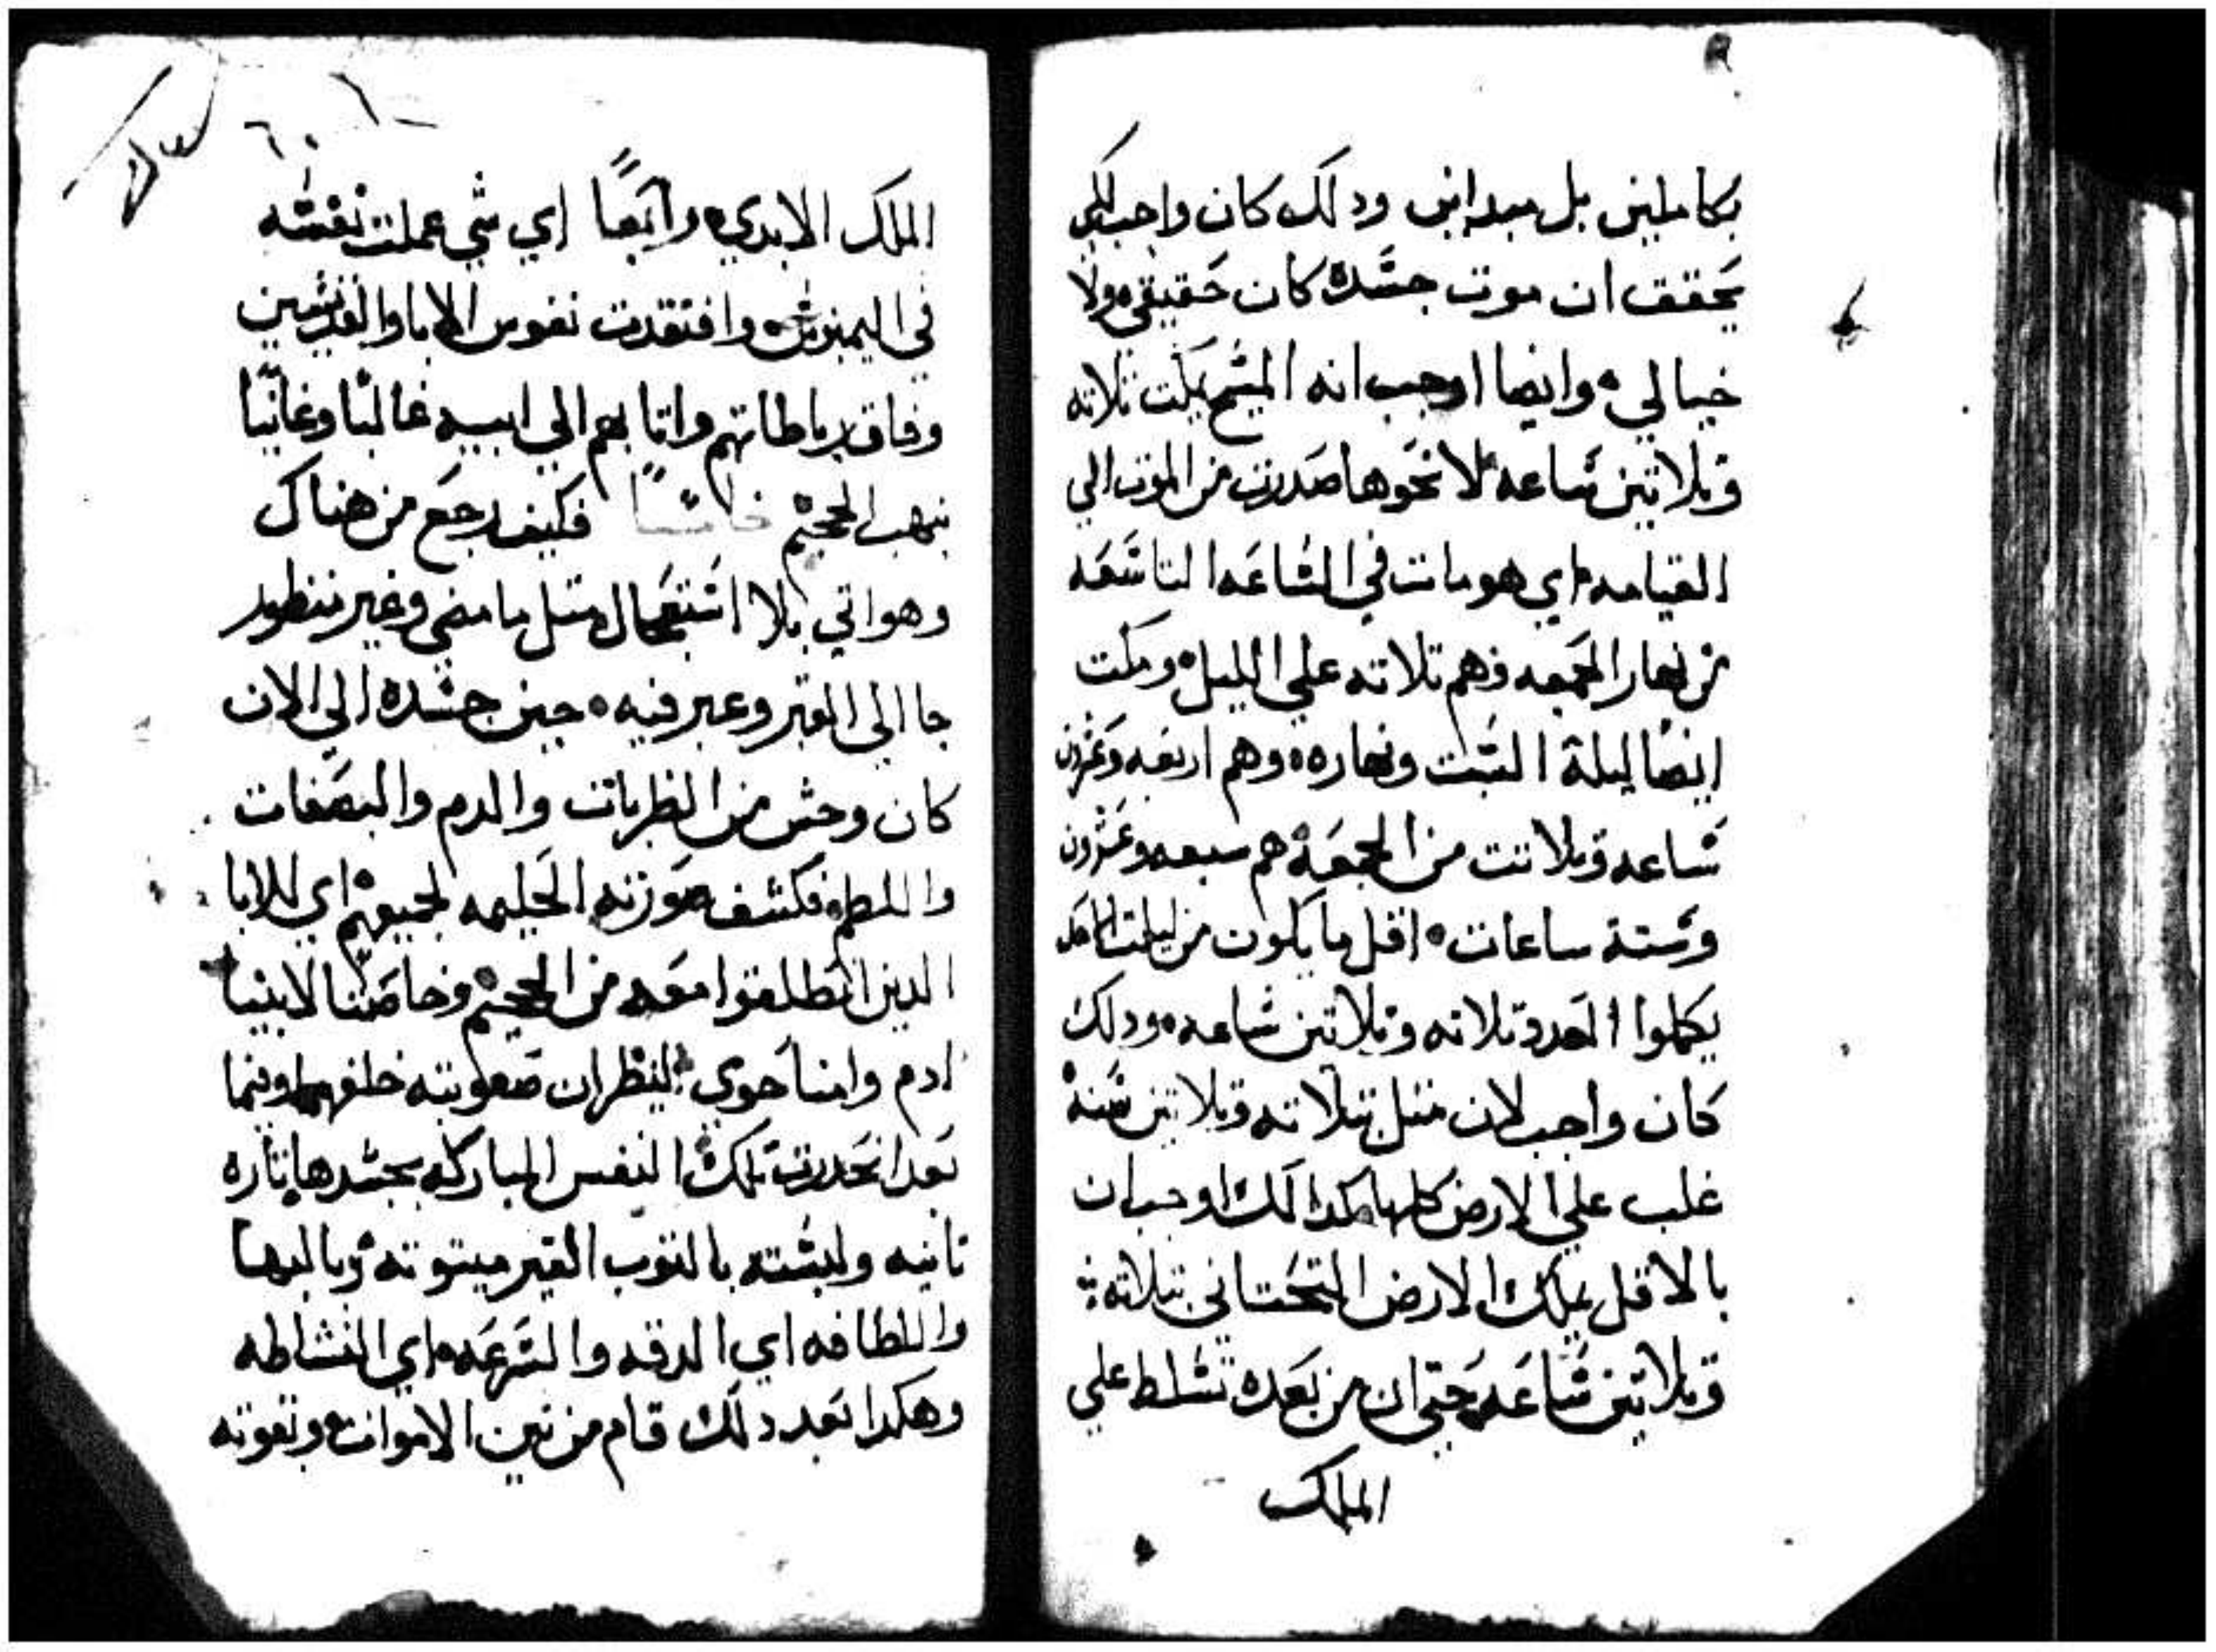 بكاملين بل مبدانين ودلك كان واجب لكي
يحقق ان موت جسده كان حقيقي ولا
خيالي وايضا اوجب انه المسيح يمكت تلاته
وتلاتين ساعه لانحوها صدرت من الموت الي
القيامه اي هو مات في الساعه التاسعه
من نهار الجمعه فهم تلاته علي الليل ومكت
ايضا ليلة السبت ونهاره وهم اربعه وعشرون
ساعه وتلاتت من الجمعه هم سبعه وعشرون
وستة ساعات اقل ما يكون من ليلت الاحد
يكملوا العدد تلاته وتلاتين ساعه ودلك
كان واجب لان متل تتلاته وتلاتين سنه
غلب علي الارض كلها كدالك اوجب ان
بالاقل يملك الارض التحتاني تتلاته
وتلاتين ساعه حتي ان من بعده تسلط علي
الملك
الملك الابدي رابعا اي شي عملت نفسه
في اليمبوس وافتقدت نفوس الابا والقديسين
وفاق رباطاتهم واتا بهم الي ابيه غالبا وغانيا
بنهب الجحيم خامسا فكيف رجع من هناك
وهو اتي بلا استعجال متل ما مضي وغير منظور
جا الي القبر وعبر فيه حين جسده الي الان
كان وحش من الضربات والدم والبصقات
واللطم فكشف صورته الحليمه لجميعهم اي للابا
الدين انطلقوا معه من الجحيم وخاصتا لابينا
ادم وامنا حوي لينظران صعوبته خلفهما وبنما
بعد انحدرت تلك النفس المباركه بجسدها تاره
تانيه ولبسته بالتوب الغير ميتوته وبالبها
واللطافه اي الدقه والسرعه اي النشاطه
وهكدا بعد دلك قام من بين الاموات وبقوته